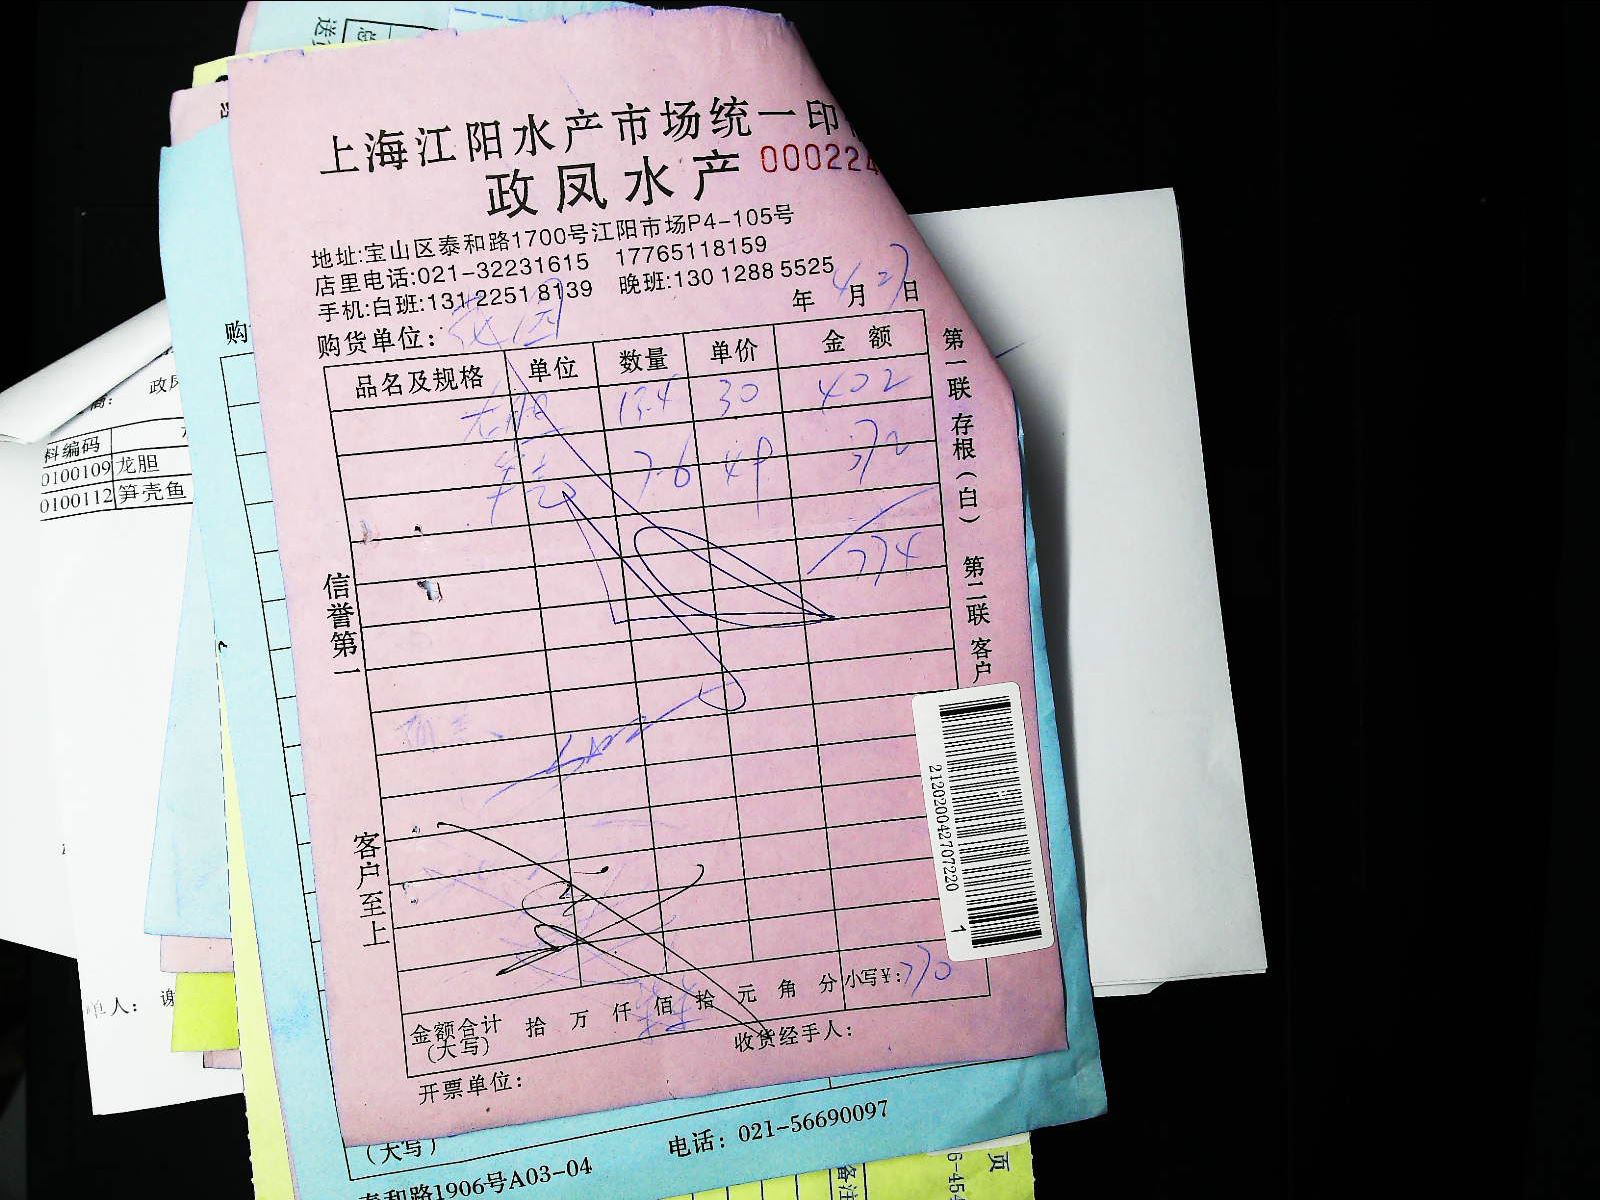 上海江阳水产市场统一印
政凤水产 000224
地址:宝山区泰和路1700号江阳市场P4-105号
店里电话:021-32231615 17765118159
手机:白班:131 2251 8139 晚班:130 1288 5525
4 27
年 月 日
购货单位:
品名及规格 单位 数量 单价 金额
13.4 30 402
7.6 49 372
774
信誉第一
客户至上
第一联 存根(白) 第二联 客户
2120202042707220 1
金额合计 拾 万 仟 佰 拾 元 角 分 小写¥: 770
(大写)
收货经手人:
开票单位:
(大写)
电话: 021-56690097
泰和路1906号A03-04
购
政凤
料编码
0100109 龙胆
0100112 笋壳鱼
单人: 谢
备注
页